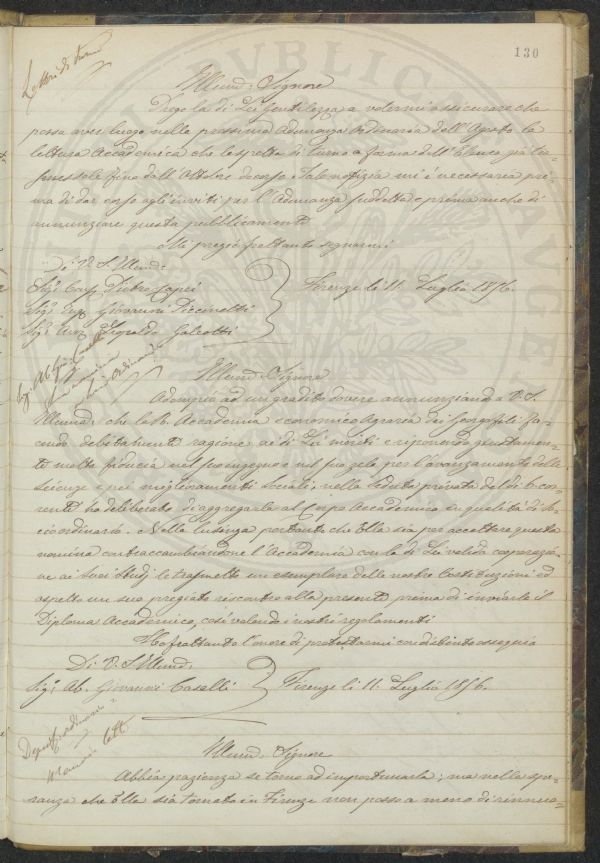 130
Lettori di turno
Illmo. Signore
Prego la di Lei Gentilezza a volermi assicurare che
possa aver luogo nella prossima Adunanza ordinaria dell'Agosto la
lettura Accademica che le spetta di turno a forma dell'Elenco già tra-
smessole fino dall'Ottobre decorso. Tale notizia mi è necessaria pri-
ma di dar corso agli inviti per l'Adunanza suddetta e prima anche di
annunziare questa pubblicamente
Mi pregio frattanto segnarmi
Di V. S. Illma.
Sigr. Cav. Pietro Capei
Sigr. Giovanni
Sigr. Leopoldo Galeotti
Firenze li 11. Luglio 1856.
Sig. Ab. Gio. Caselli
nomina
Ordinario
Illmo. Signore
Adempio ad un gradito dovere annunziando a V. S.
Illma. che la R. Accademia economico Agraria dei Georgofili fa-
cendo debitamente ragione ai di Lei meriti e riponendo giustamen-
te molta fiducia nel suo ingegno e nel suo zelo per l'avanzamento delle
scienze e pei miglioramenti sociali, nella seduta privata del dì 6. cor-
rente ha deliberato di aggregarla al Corpo Accademico in qualità di So-
cio ordinario. Nella lusinga pertanto che Ella sia per accettare questa
nomina contraccambiandone l'Accademia con la di Lei valida cooperazio-
ne ai suoi Studj le trasmetto un esemplare delle nostre Costituzioni ed
aspetto un suo pregiato riscontro alla presente prima di inviarle il
Diploma Accademico, così volendo i nostri regolamenti
Ho frattanto l'onore di protestarmi con distinto ossequio
Di V. S. Illma.
Sigr. Ab. Giovanni Caselli
Firenze li 11. Luglio 1856.
Illmo. Signore
Abbia pazienza se torno ad importunarla; ma nella spe-
ranza che Ella sia tornato in Firenze non posso a meno di rinnuo-